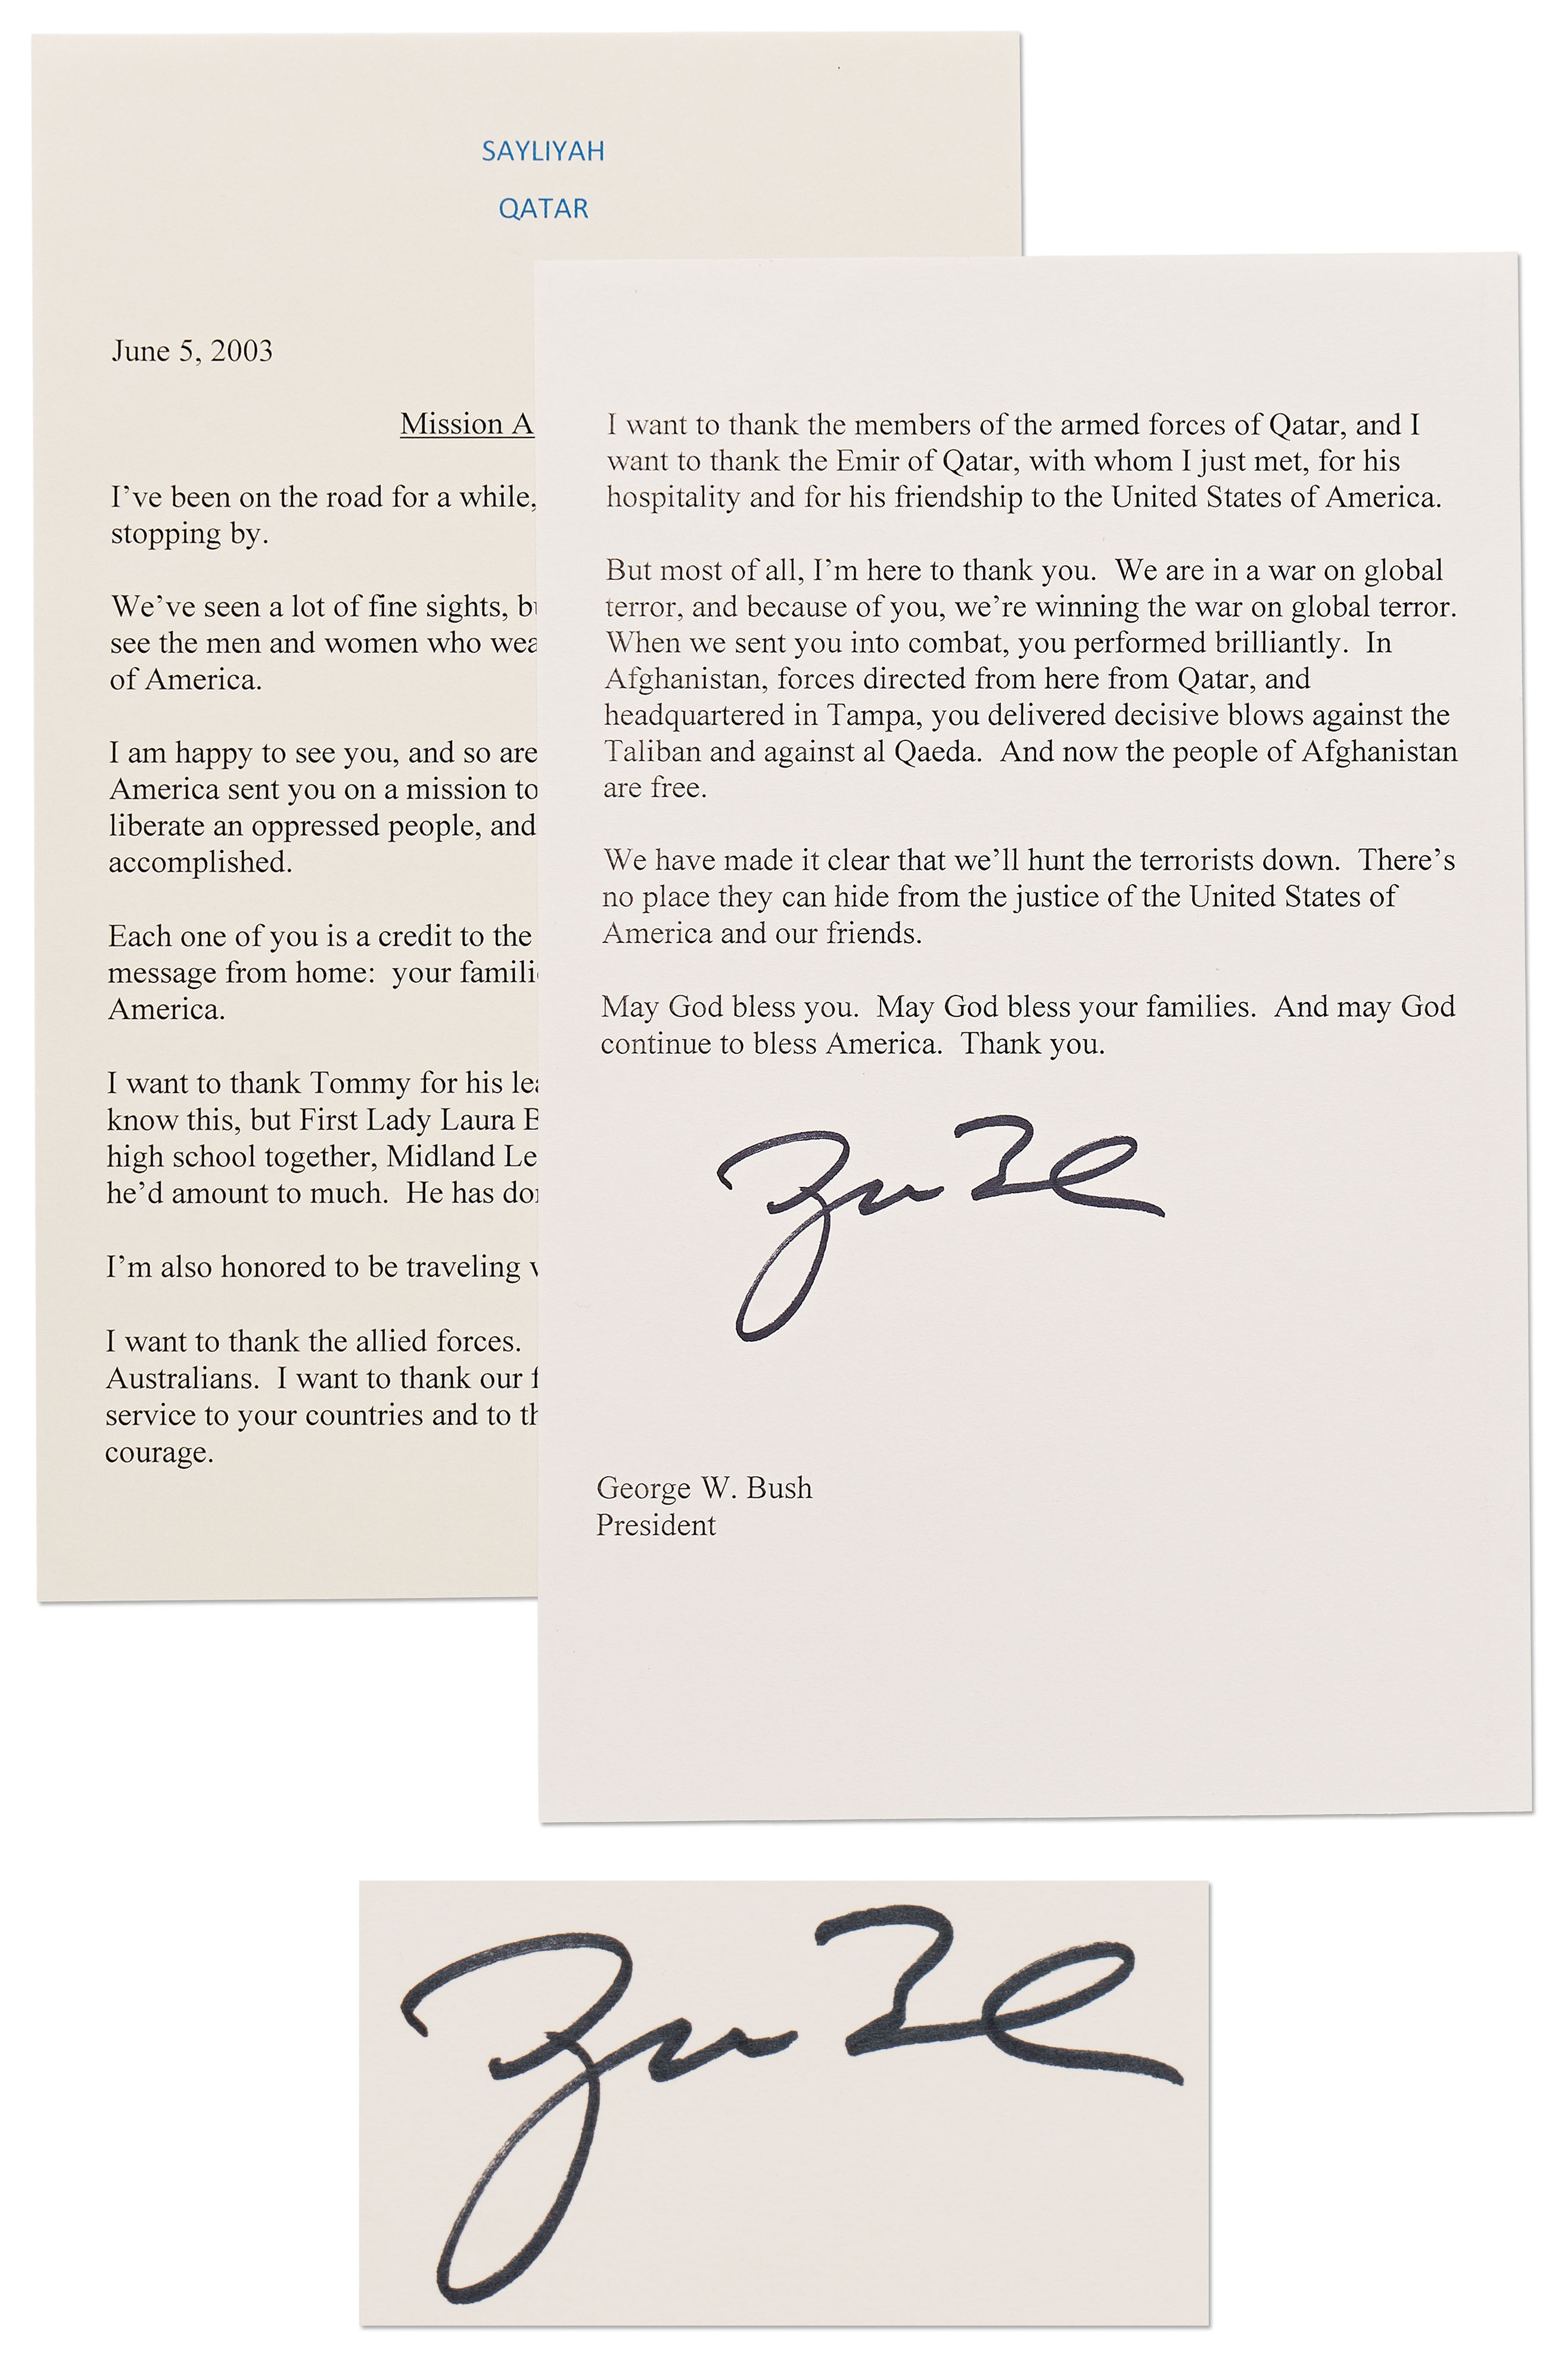 SAYLIYAH
QATAR
June 5, 2003
Mission A
I've been on the road for a while,
stopping by.
We've seen a lot of fine sights, bu
see the men and women who wea
of America.
I am happy to see you, and so are
America sent you on a mission to
liberate an oppressed people, and
accomplished.
Each one of you is a credit to the
message from home:  your famili
America.
I want to thank Tommy for his lea
know this, but First Lady Laura B
high school together, Midland Le
he'd amount to much.  He has do
I'm also honored to be traveling
I want to thank the allied forces.
Australians.  I want to thank our f
service to your countries and to th
courage.
I want to thank the members of the armed forces of Qatar, and I
want to thank the Emir of Qatar, with whom I just met, for his
hospitality and for his friendship to the United States of America.
But most of all, I'm here to thank you.  We are in a war on global
terror, and because of you, we're winning the war on global terror.
When we sent you into combat, you performed brilliantly.  In
Afghanistan, forces directed from here from Qatar, and
headquartered in Tampa, you delivered decisive blows against the
Taliban and against al Qaeda.  And now the people of Afghanistan
are free.
We have made it clear that we'll hunt the terrorists down.  There's
no place they can hide from the justice of the United States of
America and our friends.
May God bless you.  May God bless your families.  And may God
continue to bless America.  Thank you.
George W. Bush
President